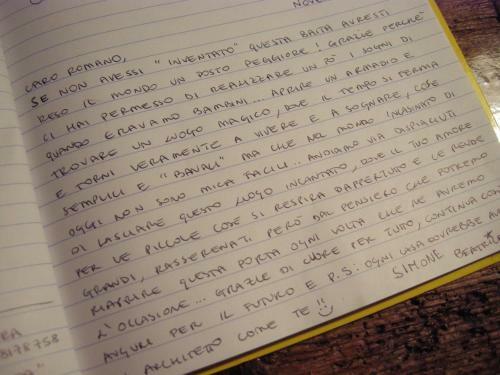 NOVE
CARO ROMANO,
SE NON AVESSI "INVENTATO" QUESTA BAITA AVRESTI
RESO IL MONDO UN POSTO PEGGIORE! GRAZIE PERCHÈ
CI HAI PERMESSO DI REALIZZARE UN PO' I SOGNI DI
QUANDO ERAVAMO BAMBINI... APRIRE UN ARMADIO E
TROVARE UN LUOGO MAGICO, DOVE IL TEMPO SI FERMA
E TORNI VERAMENTE A VIVERE E A SOGNARE, COSE
SEMPLICI E "BANALI" MA CHE NEL MONDO INCASINATO DI
OGGI NON SONO MICA FACILI... ANDIAMO VIA DISPIACIUTI
DI LASCIARE QUESTO LUOGO INCANTATO, DOVE IL TUO AMORE
PER LE PICCOLE COSE SI RESPIRA DAPPERTUTTO E LE RENDE
GRANDI, RASSERENATI PERÒ DAL PENSIERO CHE POTREMO
RIAPRIRE QUESTA PORTA OGNI VOLTA CHE NE AVREMO
L'OCCASIONE... GRAZIE DI CUORE PER TUTTO, CONTINUA COSÌ
AUGURI PER IL FUTURO E P.S: OGNI CASA DOVREBBE A
ARCHITETTO COME TE!!
SIMONE BEATRI
RA
0178758